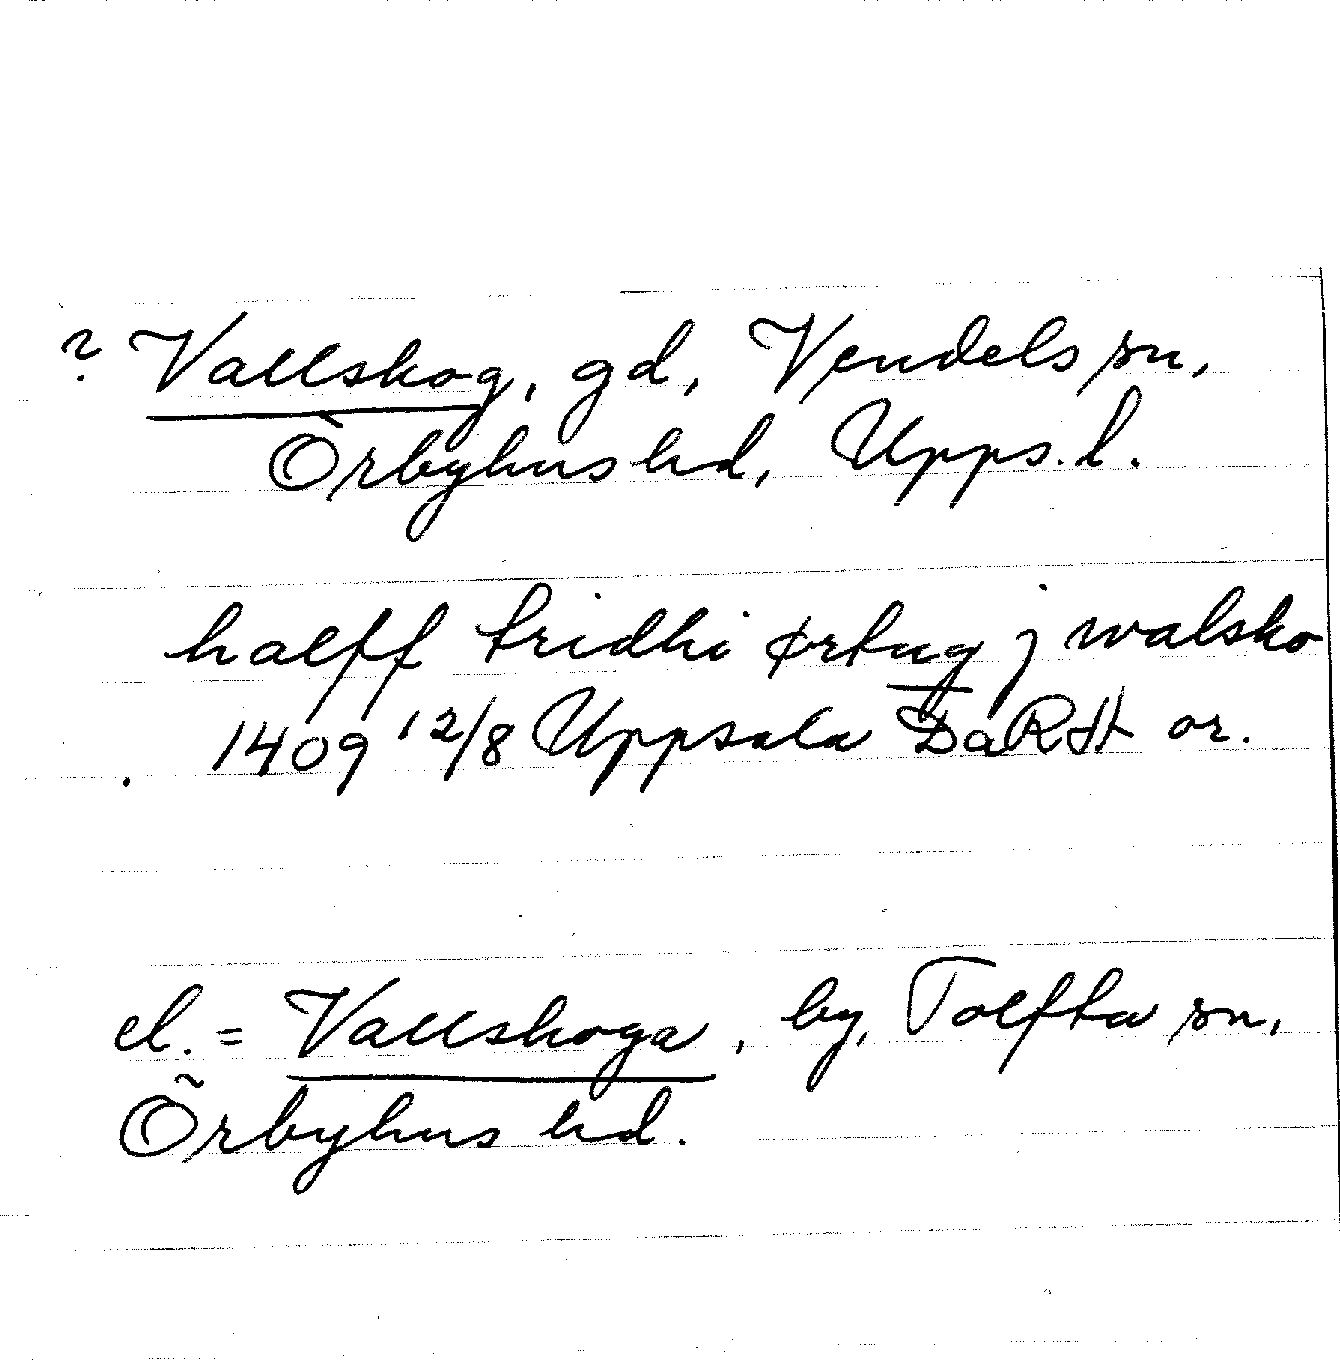 ? Vallskog, gd, Vendels sn,
Örbyhus hd, Upps. l.
halff tridhi ørtug j walsko
1409 12/8 Uppsala DaRH or.
el. = Vallskoga, by, Tolfta sn,
Örbyhus hd.